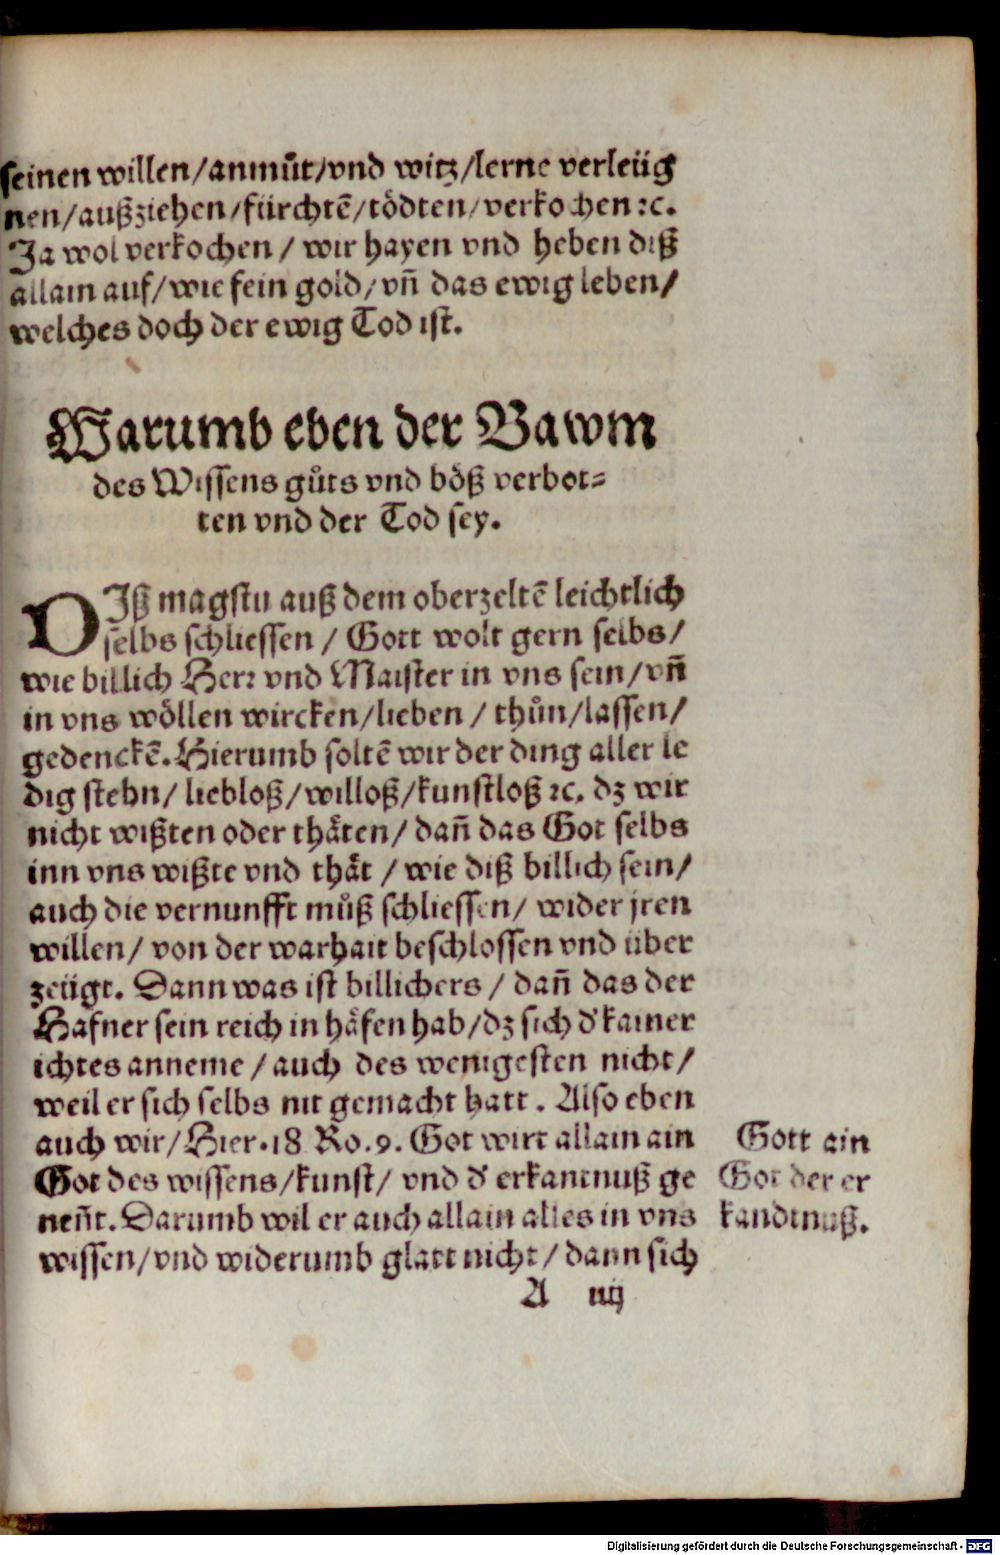 seinen willen/anmůt/vnd witz/lerne verleüg
nen/außziehen/fürchtē/tödten/verkochen ꝛc.
Ja wol verkochen / wir hayen vnd heben diß
allain auf/wie fein gold/vn̄ das ewig leben/
welches doch der ewig Tod ist.
Warumb eben der Bawm
des Wissens gůts vnd böß verbot⸗
ten vnd der Tod sey.
DJß magstu auß dem oberzeltē leichtlich
selbs schliessen / Gott wolt gern selbs/
wie billich Herꝛ vnd Maister in vns sein/vn̄
in vns wöllen wircken/lieben / thůn/lassen/
gedenckē. Hierumb soltē wir der ding aller le
dig stehn/ liebloß/willoß/kunstloß ꝛc. dz wir
nicht wißten oder thäten/ dan̄ das Got selbs
inn vns wißte vnd thät / wie diß billich sein/
auch die vernunfft můß schliessen/ wider jren
willen/ von der warhait beschlossen vnd über
zeügt. Dann was ist billichers / dan̄ das der
Hafner sein reich in häfen hab/dz sich d' kainer
ichtes anneme / auch des wenigesten nicht/
weil er sich selbs nit gemacht hatt . Also eben
auch wir/Hier.18 Ro.9. Got wirt allain ain
Got des wissens/kunst/ vnd d' erkantnuß ge
nen̄t. Darumb wil er auch allain alles in vns
wissen/vnd widerumb glatt nicht/ dann sich
Gott ain
Got der er
kandtnuß.
A iiij
Digitalisierung gefördert durch die Deutsche Forschungsgemeinschaft - DFG